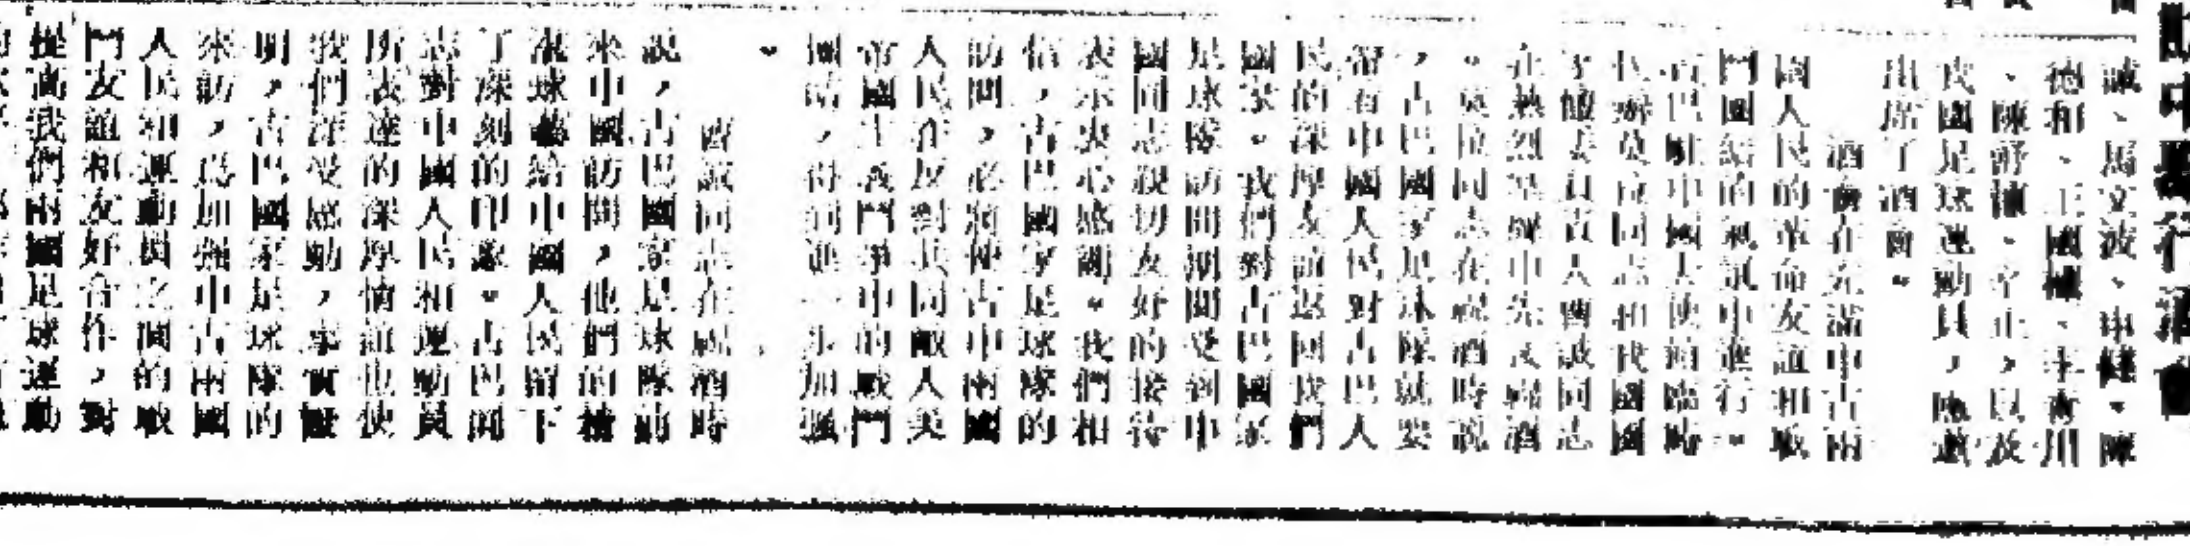 誠、馬文波、申健、陳
德和、王國權、李青川
、陳舒、李止，以及
我國足球運動員，應邀
出席了酒會。
酒會在充滿中古兩
國人民的革命友誼和戰
鬥團結的氣氛中進行。
古巴駐中國大使館臨時
代辦莫拉同志和我國國
家體委負責人曹誠同志
在熱烈掌聲中先後祝酒
。莫拉同志在祝酒時說
，古巴國家足球隊就要
帶着中國人民對古巴人
民的深厚友誼返回我們
國家。我們對古巴國家
足球隊訪問期間受到中
國同志親切友好的接待
表示衷心感謝。我們相
信，古巴國家足球隊的
訪問，必將使古中兩國
人民在反對共同敵人美
帝國主義鬥爭中的戰鬥
團結，得到進一步加強
。
曹誠同志在祝酒時
說，古巴國家足球隊前
來中國訪問，他們的精
湛球藝給中國人民留下
了深刻的印象。古巴同
志對中國人民和運動員
所表達的深厚情誼也使
我們深受感動，事實證
明，古巴國家足球隊的
來訪，爲加強中古兩國
人民和運動員之間的戰
鬥友誼和友好合作，對
提高我們兩國足球運動